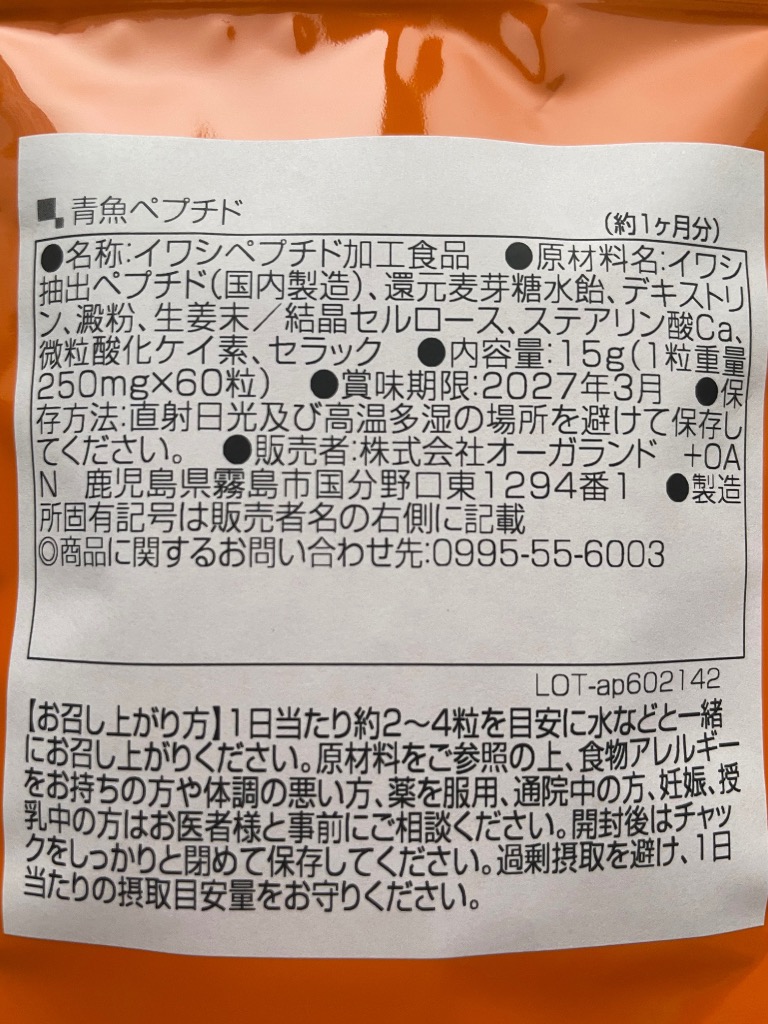 青魚ペプチド
(約1ヶ月分)
●名称:イワシペプチド加工食品 ●原材料名:イワシ
抽出ペプチド(国内製造)、還元麦芽糖水飴、デキストリ
ン、澱粉、生姜末／結晶セルロース、ステアリン酸Ca、
微粒酸化ケイ素、セラック ●内容量:15g(1粒重量
250mg×60粒) ●賞味期限:2027年3月 ●保
存方法:直射日光及び高温多湿の場所を避けて保存し
てください。 ●販売者:株式会社オーガランド +OA
N 鹿児島県霧島市国分野口東1294番1 ●製造
所固有記号は販売者名の右側に記載
◎商品に関するお問い合わせ先:0995-55-6003
LOT-ap602142
【お召し上がり方】1日当たり約2～4粒を目安に水などと一緒
にお召し上がりください。原材料をご参照の上、食物アレルギー
をお持ちの方や体調の悪い方、薬を服用、通院中の方、妊娠、授
乳中の方はお医者様と事前にご相談ください。開封後はチャッ
クをしっかりと閉めて保存してください。過剰摂取を避け、1日
当たりの摂取目安量をお守りください。